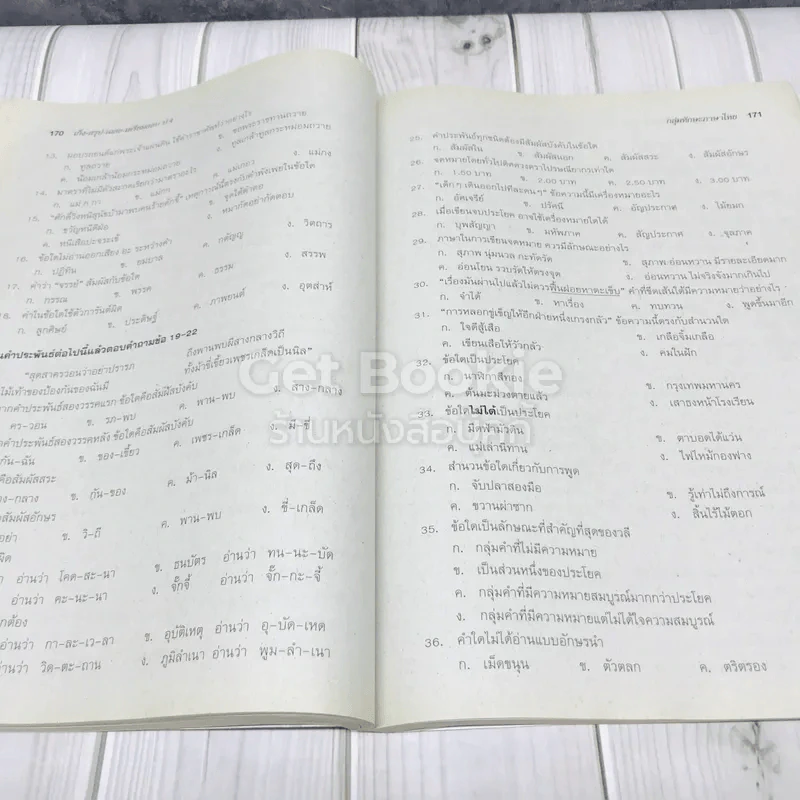 170
13.
ก. ทูลถวาย
ข. ขอพระราชทานถวาย
14. มาตราที่ไม่มีตัวสะกดเรียกว่ามาตราอะไร
ก. แม่ ก กา
ข. แม่กน
ค. แม่เกอว
ง. แม่กง
15.
ข. ขุดได้ด้าตอ
ค. หนีเสือปะจระเข้
ง. หมากัดอย่ากัดตอบ
16. ข้อใดไม่อ่านออกเสียง อะ ระหว่างคำ
ก. ปฏิทิน
ข. ยมบาล
ค. กตัญญู
ง. วิตถาร
17. คำว่า "จรรย์" สัมผัสกับข้อใด
ก. กรรณ
ข. พรรค
ค. ธรรม
ง. สรรพ
18. คำในข้อใดใช้ตัวการันต์ผิด
ก. ลูกศิษย์
ข. ประดิษฐ์
ค. ภาพยนต์
ง. อุตส่าห์
นคำประพันธ์ต่อไปนี้แล้วตอบคำถามข้อ 19-22
"สุดสาครวอนว่าอย่าปรารภ ถึงพานพบผีสางกลางวิถี
ไม้เท้าของป้องกันของฉันมี ทั้งม้าขี่เขี้ยวเพชรเกล็ดเป็นนิล"
ากคำประพันธ์สองวรรคแรก ข้อใดคือสัมผัสบังคับ
คร-วอน
ข. รภ-พบ
ค. พาน-พบ
ง. สาง-กลาง
คำประพันธ์สองวรรคหลัง ข้อใดคือสัมผัสบังคับ
กัน-ฉัน
ข. ของ-เขี้ยว
ค. เพชร-เกล็ด
ง. มี-ขี่
คือสัมผัสสระ
ง-กลาง
ข. กัน-ของ
ค. ม้า-นิล
ง. สุด-ถึง
สัมผัสอักษร
อย่า
ข. วิ-ถี
ค. พาน-พบ
ง. ขี่-เกล็ด
ผิด
า อ่านว่า โคด-สะ-นา
ข. ธนบัตร อ่านว่า ทน-นะ-บัด
อ่านว่า คะ-นะ-นา
ง. จั๊กจี้ อ่านว่า จั๊ก-กะ-จี้
กต้อง
อ่านว่า กา-ละ-เว-ลา
ข. อุบัติเหตุ อ่านว่า อุ-บัด-เหด
อ่านว่า วิด-ตะ-ถาน
ง. ภูมิลำเนา อ่านว่า พูม-ลำ-เนา
กลุ่มทักษะภาษาไทย 171
25. คำประพันธ์ทุกชนิดต้องมีสัมผัสบังคับในข้อใด
ก. สัมผัสใน ข. สัมผัสนอก ค. สัมผัสสระ ง. สัมผัสอักษร
26. จดหมายโดยทั่วไปติดดวงตราไปรษณียากรเท่าใด
ก. 1.50 บาท ข. 2.00 บาท ค. 2.50 บาท ง. 3.00 บาท
27. "เด็กๆ เดินออกไปทีละคนๆ" ข้อความนี้มีเครื่องหมายอะไร
ก. อัศเจรีย์ ข. ปรัศนี ค. อัญประกาศ ง. ไม้ยมก
28. เมื่อเขียนจบประโยค อาจใช้เครื่องหมายใดได้
ก. บุพสัญญา ข. มหัพภาค ค. สัญประกาศ ง. จุลภาค
29. ภาษาในการเขียนจดหมาย ควรมีลักษณะอย่างไร
ก. สุภาพ นุ่มนวล กะทัดรัด ข. สุภาพ อ่อนหวาน มีรายละเอียดมาก
ค. อ่อนโยน รวบรัดให้ตรงจุด ง. อ่อนหวาน ไม่จริงจังมากเกินไป
30. "เรื่องมันผ่านไปแล้วไม่ควรฟื้นฝอยหาตะเข็บ" คำที่ขีดเส้นใต้มีความหมายว่าอย่างไร
ก. จำได้ ข. หาเรื่อง ค. ทบทวน ง. พูดขึ้นมาอีก
31. "การหลอกขู่เข็ญให้อีกฝ่ายหนึ่งเกรงกลัว" ข้อความนี้ตรงกับสำนวนใด
ก. ใจดีสู้เสือ ข. เกลือจิ้มเกลือ
ค. เขียนเสือให้วัวกลัว ง. คมในฝัก
32. ข้อใดเป็นประโยค
ก. นาฬิกาสีทอง ข. กรุงเทพมหานคร
ค. ต้นมะม่วงตายแล้ว ง. เสาธงหน้าโรงเรียน
33. ข้อใดไม่ได้เป็นประโยค
ก. มืดฟ้ามัวดิน ข. ตาบอดได้แว่น
ค. แม่เล่านิทาน ง. ไฟไหม้กองฟาง
34. สำนวนข้อใดเกี่ยวกับการพูด
ก. จับปลาสองมือ ข. รู้เท่าไม่ถึงการณ์
ค. ขวานผ่าซาก ง. สิ้นไร้ไม้ตอก
35. ข้อใดเป็นลักษณะที่สำคัญที่สุดของวลี
ก. กลุ่มคำที่ไม่มีความหมาย
ข. เป็นส่วนหนึ่งของประโยค
ค. กลุ่มคำที่มีความหมายสมบูรณ์มากกว่าประโยค
ง. กลุ่มคำที่มีความหมายแต่ไม่ได้ใจความสมบูรณ์
36. คำใดไม่ได้อ่านแบบอักษรนำ
ก. เม็ดขนุน ข. ตัวตลก ค. ตริตรอง
Get Bookie
ร้านหนังสือเก็ท